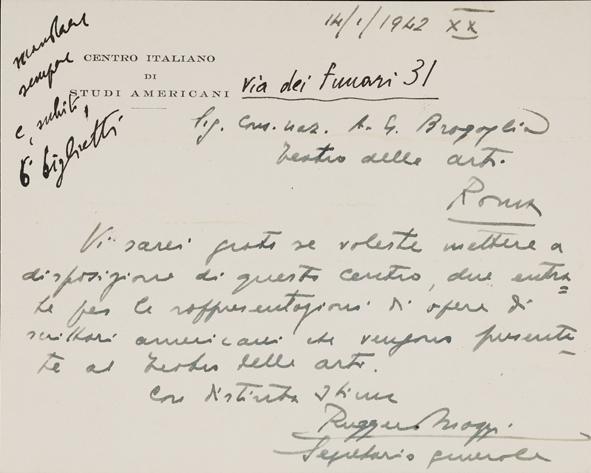 14/1/1942 XX
mandare
sempre
e, subito,
6 biglietti.
CENTRO ITALIANO
DI
STUDI AMERICANI
via dei Funari 31
Sig. Cons. naz. A. G. Bragaglia
Teatro delle arti.
Roma
Vi sarei grato se voleste mettere a
disposizione di questo centro, due entra=
te per le rappresentazioni di opere di
scrittori americani che vengono presenta=
te al Teatro delle arti.
Con distinta stima
Ruggero
Segretario generale